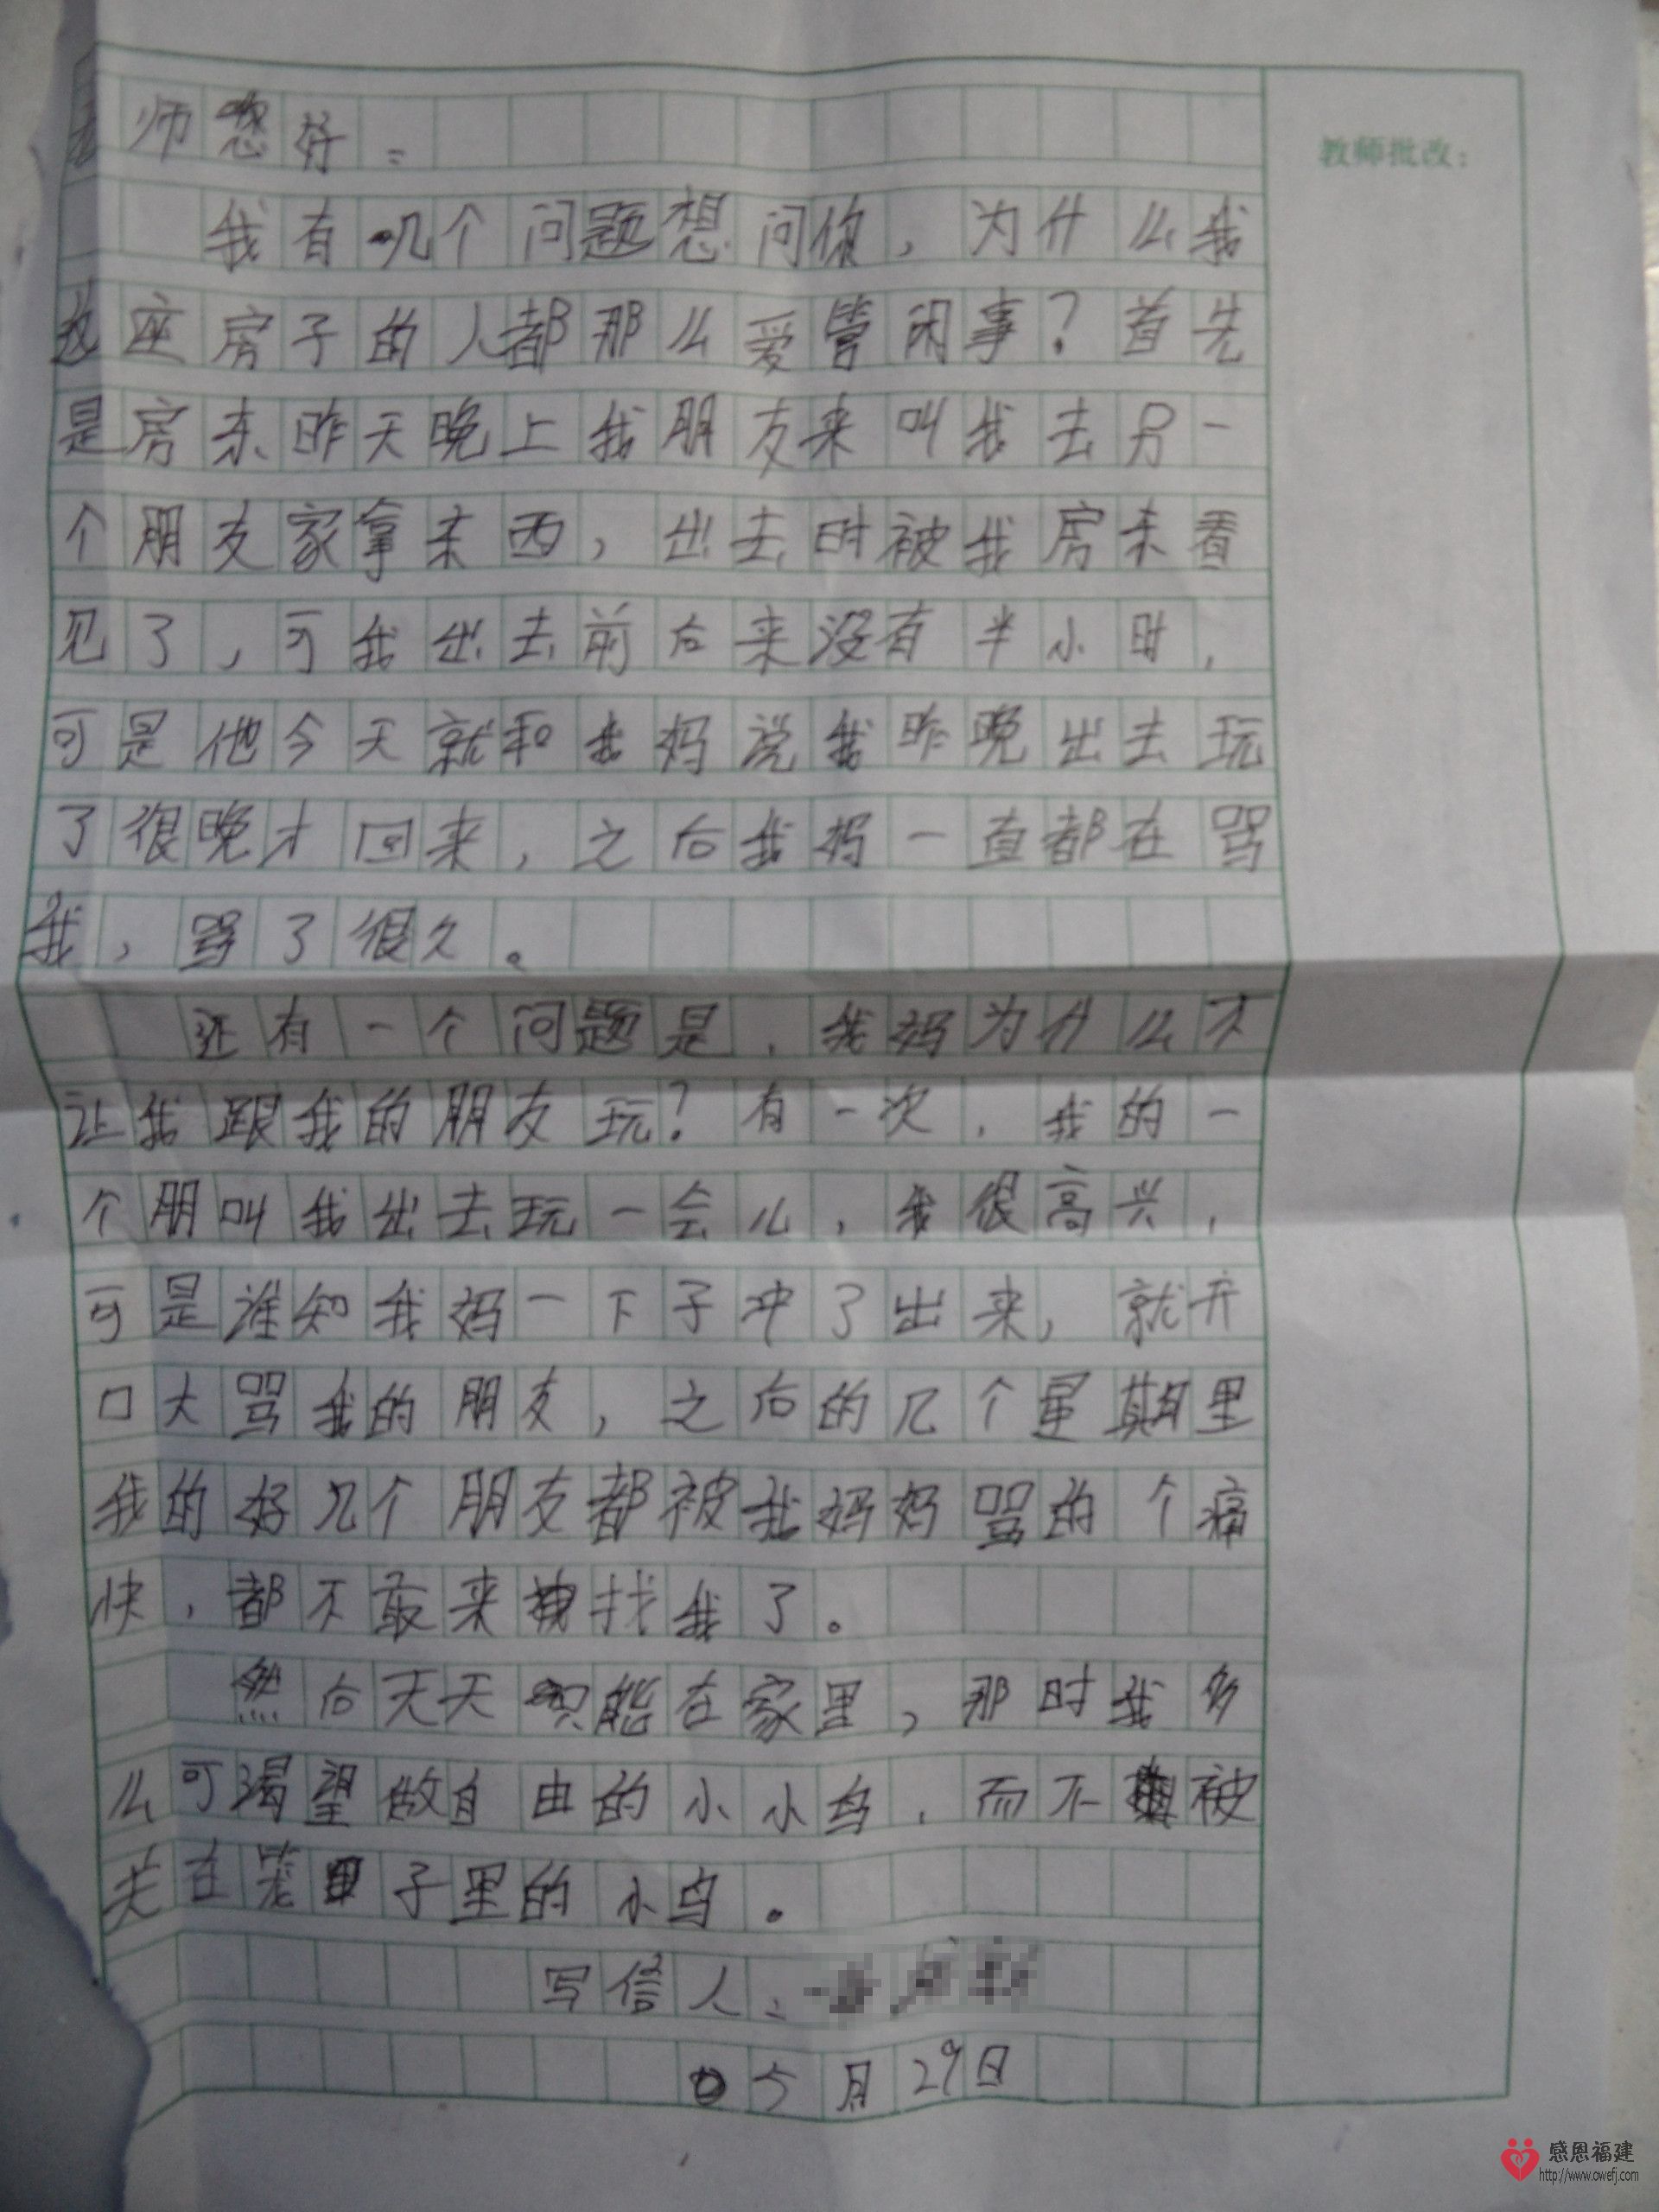 老师您好:
教师批改:
我有几个问题想问你,为什么我
这座房子的人都那么爱管闲事?首先
是房东昨天晚上我朋友来叫我去另一
个朋友家拿东西,出去时被我房东看
见了,可我出去前后来没有半小时,
可是他今天就和我妈说我昨晚出去玩
了很晚才回来,之后我妈一直都在骂
我,骂了很久。
还有一个问题是,我妈为什么不
让我跟我的朋友玩?有一次,我的一
个朋叫我出去玩一会儿,我很高兴,
可是谁知我妈一下子冲了出来,就开
口大骂我的朋友,之后的几个星期里
我的好几个朋友都被我妈妈骂的个痛
快,都不敢来找我了。
然后天天只能在家里,那时我多
么可渴望做自由的小小鸟,而不被
关在笼子里的小鸟。
写信人:
5月29日
感恩福建
http://www.owefj.com